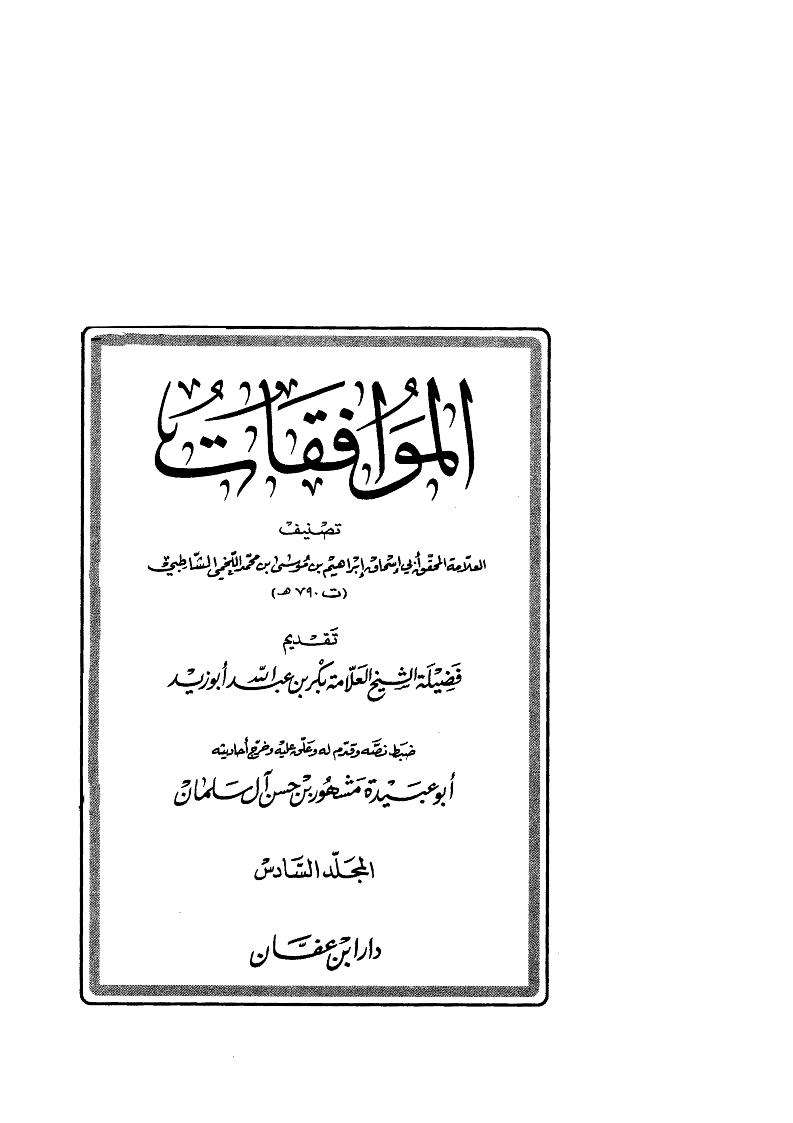 الموافقات
تصنيف
العلامة المحقق أبي إسحاق إبراهيم بن موسى بن محمد اللخمي الشاطبي
(ت ٧٩٠ هـ)
تقديم
فضيلة الشيخ العلامة بكر بن عبد الله أبو زيد
ضبط نصه وقدم له وعلق عليه وخرج أحاديثه
أبو عبيدة مشهور بن حسن آل سلمان
المجلد السادس
دار ابن عفان